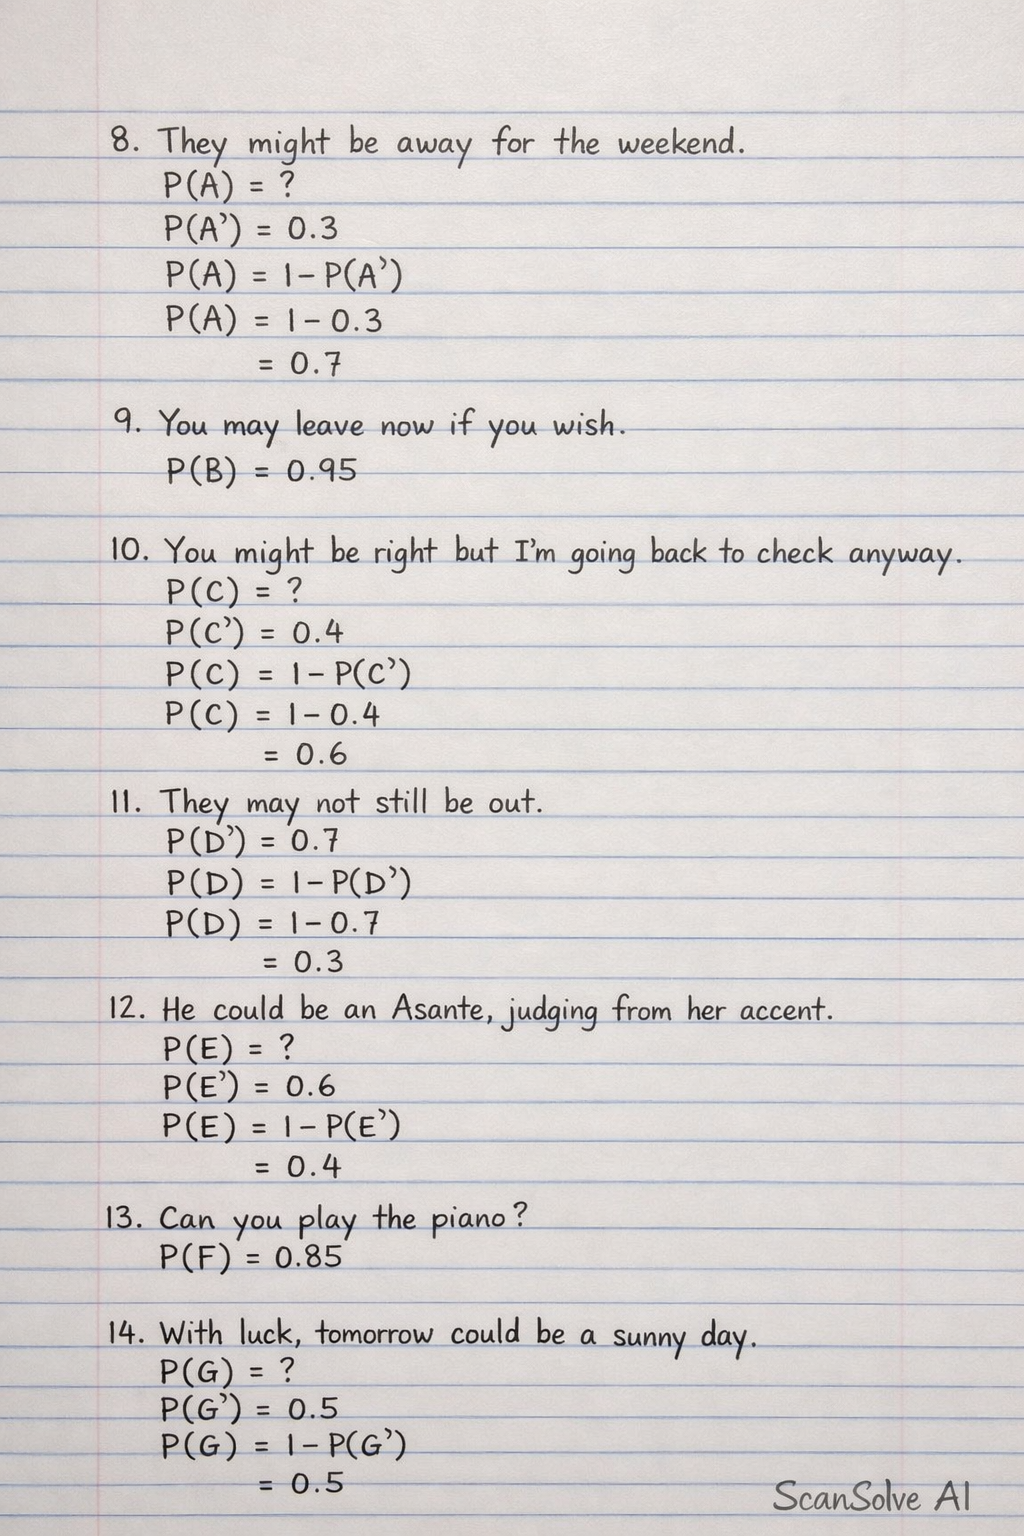 8. They might be away for the weekend.
P(A) = ?
P(A') = 0.3
P(A) = 1 - P(A')
P(A) = 1 - 0.3
= 0.7
9. You may leave now if you wish.
P(B) = 0.95
10. You might be right but I'm going back to check anyway.
P(C) = ?
P(C') = 0.4
P(C) = 1 - P(C')
P(C) = 1 - 0.4
= 0.6
11. They may not still be out.
P(D') = 0.7
P(D) = 1 - P(D')
P(D) = 1 - 0.7
= 0.3
12. He could be an Asante, judging from her accent.
P(E) = ?
P(E') = 0.6
P(E) = 1 - P(E')
= 0.4
13. Can you play the piano?
P(F) = 0.85
14. With luck, tomorrow could be a sunny day.
P(G) = ?
P(G') = 0.5
P(G) = 1 - P(G')
= 0.5
ScanSolve AI